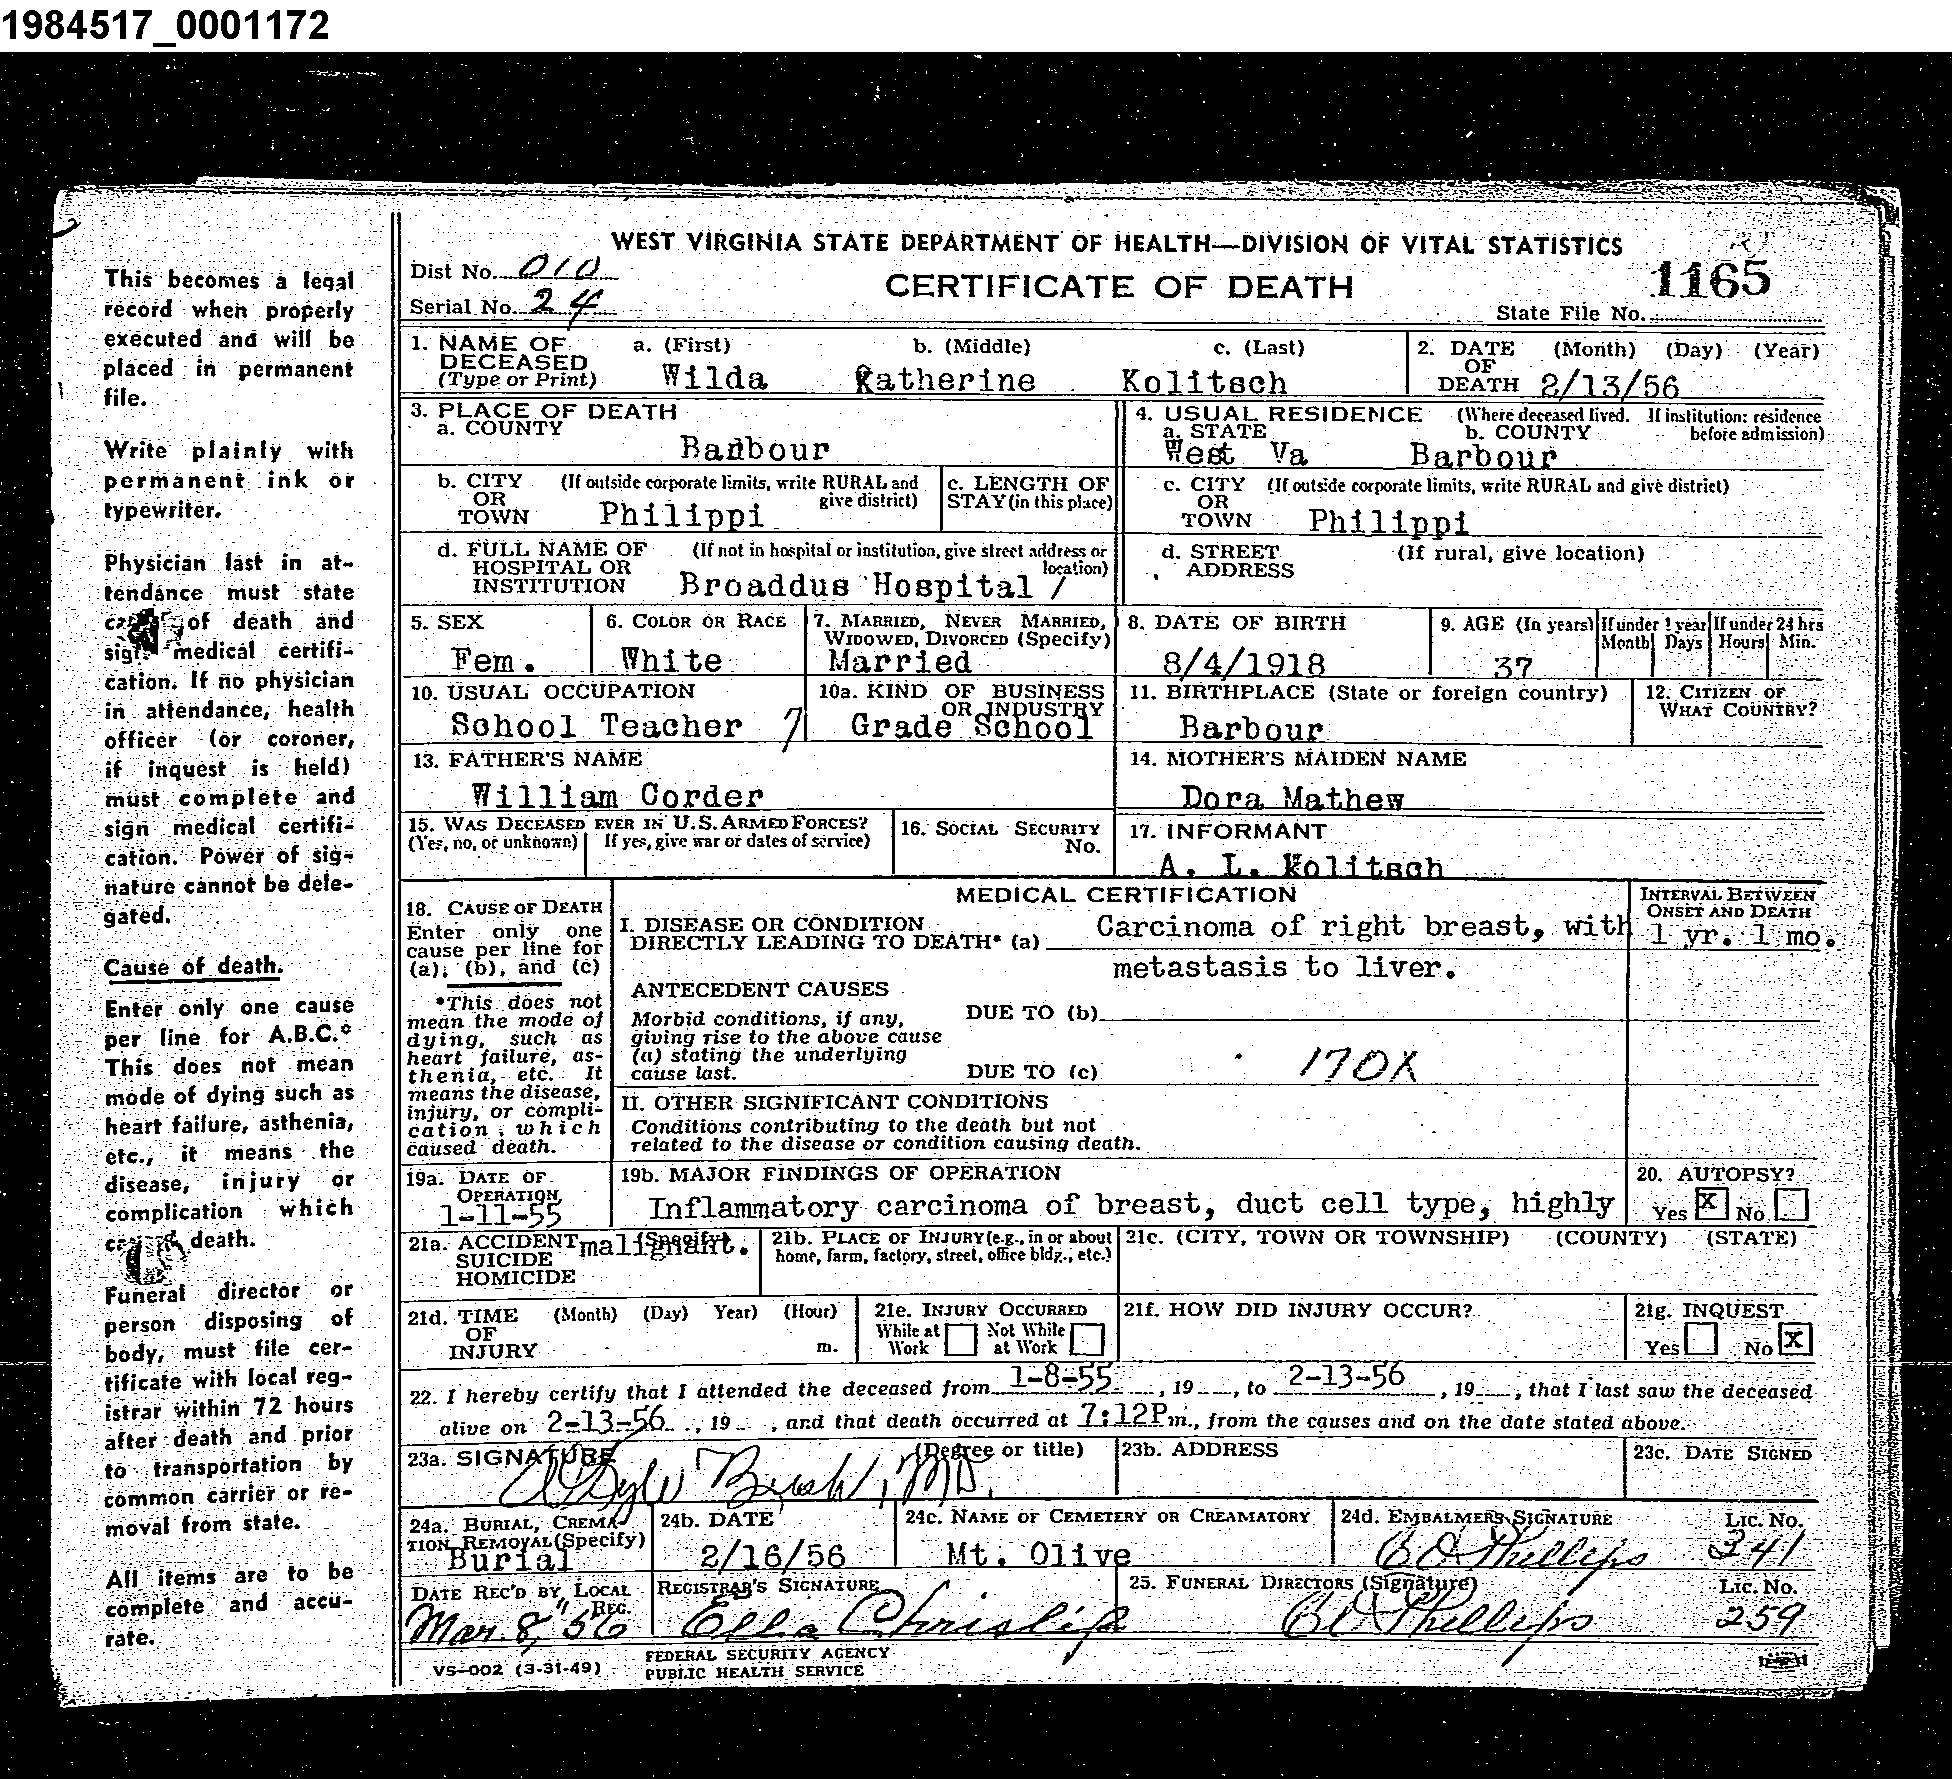 1984517_0001172
This becomes a legal
record when properly
executed and will be
placed in permanent
file.
Write plainly with
permanent ink or
typewriter.
Physician last in at-
tendance must state
of death and
medical certifi-
cation. If no physician
in attendance, health
officer (or coroner,
if inquest is held)
must complete and
sign medical certifi-
cation. Power of sig-
nature cannot be dele-
gated.
Cause of death.
Enter only one cause
per line for A.B.C.
This does not mean
mode of dying such as
heart failure, asthenia,
etc., it means the
disease, injury or
complication which
death.
Funeral director or
person disposing of
body, must file cer-
tificate with local reg-
istrar within 72 hours
after death and prior
to transportation by
common carrier or re-
moval from state.
All items are to be
complete and accu-
rate.
WEST VIRGINIA STATE DEPARTMENT OF HEALTH—DIVISION OF VITAL STATISTICS
Dist No. 010
CERTIFICATE OF DEATH
1165
Serial No. 24
State File No.
1. NAME OF DECEASED (Type or Print)
a. (First) b. (Middle) c. (Last)
Wilda Katherine Kolitsch
2. DATE OF DEATH (Month) (Day) (Year)
2/13/56
3. PLACE OF DEATH
a. COUNTY
Barbour
4. USUAL RESIDENCE (Where deceased lived. If institution: residence before admission)
a. STATE b. COUNTY
West Va Barbour
b. CITY OR TOWN (If outside corporate limits, write RURAL and give district)
Philippi
c. LENGTH OF STAY (in this place)
c. CITY OR TOWN (If outside corporate limits, write RURAL and give district)
Philippi
d. FULL NAME OF HOSPITAL OR INSTITUTION (If not in hospital or institution, give street address or location)
Broaddus Hospital /
d. STREET ADDRESS (If rural, give location)
5. SEX
Fem.
6. COLOR OR RACE
White
7. MARRIED, NEVER MARRIED, WIDOWED, DIVORCED (Specify)
Married
8. DATE OF BIRTH
8/4/1918
9. AGE (In years)
37
If under 1 year
Month Days
If under 24 hrs
Hours Min.
10. USUAL OCCUPATION
School Teacher 7
10a. KIND OF BUSINESS OR INDUSTRY
Grade School
11. BIRTHPLACE (State or foreign country)
Barbour
12. CITIZEN OF WHAT COUNTRY?
13. FATHER'S NAME
William Corder
14. MOTHER'S MAIDEN NAME
Dora Mathew
15. WAS DECEASED EVER IN U.S. ARMED FORCES?
(Yes, no, or unknown) If yes, give war or dates of service)
16. SOCIAL SECURITY No.
17. INFORMANT
A. L. Kolitsch
18. CAUSE OF DEATH
Enter only one
cause per line for
(a), (b), and (c)
*This does not
mean the mode of
dying, such as
heart failure, as-
thenia, etc. It
means the disease,
injury, or compli-
cation which
caused death.
MEDICAL CERTIFICATION
I. DISEASE OR CONDITION
DIRECTLY LEADING TO DEATH* (a) Carcinoma of right breast, with
metastasis to liver.
INTERVAL BETWEEN ONSET AND DEATH
1 yr. 1 mo.
ANTECEDENT CAUSES
Morbid conditions, if any,
giving rise to the above cause
(a) stating the underlying
cause last.
DUE TO (b)
DUE TO (c)
170X
II. OTHER SIGNIFICANT CONDITIONS
Conditions contributing to the death but not
related to the disease or condition causing death.
19a. DATE OF OPERATION
1-11-55
19b. MAJOR FINDINGS OF OPERATION
Inflammatory carcinoma of breast, duct cell type, highly
malignant.
20. AUTOPSY?
Yes X No
21a. ACCIDENT SUICIDE HOMICIDE (Specify)
21b. PLACE OF INJURY (e.g., in or about
home, farm, factory, street, office bldg., etc.)
21c. (CITY, TOWN OR TOWNSHIP) (COUNTY) (STATE)
21d. TIME OF INJURY (Month) (Day) Year) (Hour) m.
21e. INJURY OCCURRED
While at Work Not While at Work
21f. HOW DID INJURY OCCUR?
21g. INQUEST
Yes No X
22. I hereby certify that I attended the deceased from 1-8-55, 19 , to 2-13-56, 19 , that I last saw the deceased
alive on 2-13-56, 19 , and that death occurred at 7:12P m., from the causes and on the date stated above.
23a. SIGNATURE (Degree or title)
Bush, M.D.
23b. ADDRESS
23c. DATE SIGNED
24a. BURIAL, CREMA-
TION REMOVAL (Specify)
Burial
24b. DATE
2/16/56
24c. NAME OF CEMETERY OR CREAMATORY
Mt. Olive
24d. EMBALMERS SIGNATURE
Phillips
Lic. No.
341
DATE REC'D BY LOCAL REG.
Mar. 8, 56
REGISTRAR'S SIGNATURE
Ella Chrislip
25. FUNERAL DIRECTORS (Signature)
Phillips
Lic. No.
259
VS-002 (3-31-49)
FEDERAL SECURITY AGENCY
PUBLIC HEALTH SERVICE